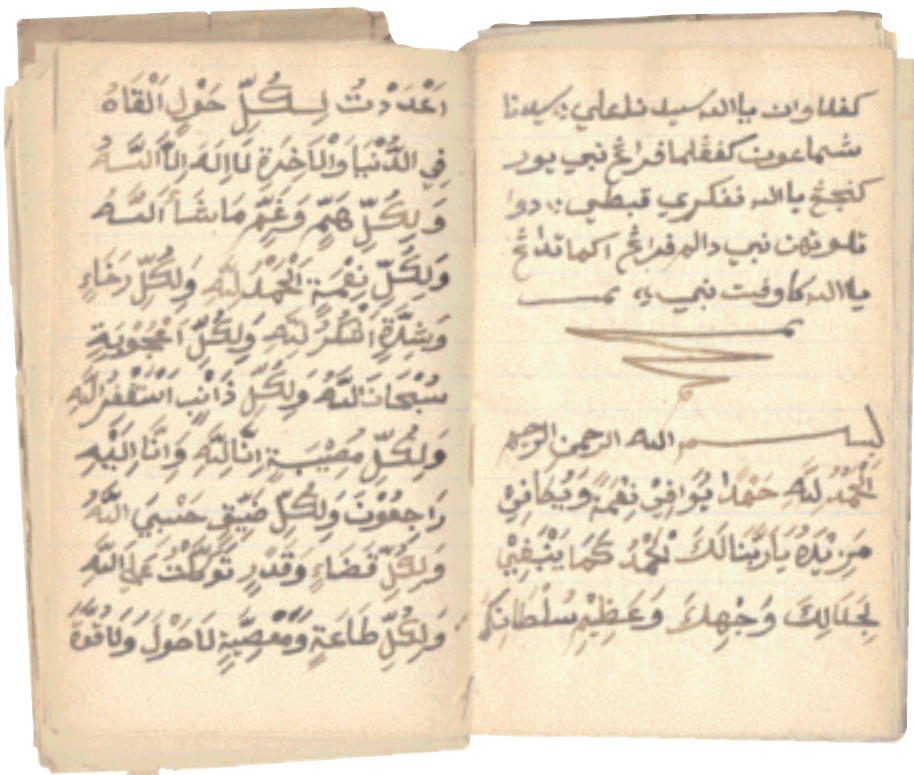 كفلاوان يا الله سيدنا علي سيدنا
شماعون كفقلما فراڠ نبي
يا الله نفكري قبطي دوا
نبي دالم فراڠ اكما
يا الله نبي تمت
بسم الله الرحمن الرحيم
اَلْحَمْدُ لِلَّهِ حَمْدًا يُوَافِيْ نِعْمَهُ وَيُكَافِيْ
مَزِيْدَهُ يَارَبَّنَا لَكَ الْحَمْدُ كَمَا يَنْبَغِيْ
لِجَلَالِكَ وَجْهِكَ وَعَظِيْمِ سُلْطَانِكَ
اَعْدَدْتُ لِكُلِّ حَوْلٍ اَلْقَاهُ
فِي الدُّنْيَا وَالْاٰخِرَةِ لَااِلٰهَ اِلَّا اللّٰهُ
وَلِكُلِّ هَمٍّ وَغَمٍّ مَاشَاۤءَ اللّٰهُ
وَلِكُلِّ نِعْمَةٍ اَلْحَمْدُ لِلّٰهِ وَلِكُلِّ رَخَاءٍ
وَشِدَّةٍ اَشْكُرُ لِلّٰهِ وَلِكُلِّ اَعْجُوْبَةٍ
سُبْحَانَ اللّٰهُ وَلِكُلِّ ذَانْبٍ اَسْتَغْفِرُ اللّٰهِ
وَلِكُلِّ مُصِيْبَةٍ اِنَّا لِلّٰهِ وَاِنَّا اِلَيْهِ
رَاجِعُوْنَ وَلِكُلِّ ضَيْقٍ حَسْبِيَ اللّٰهُ
وَلِكُلِّ قَضَاءٍ وَقَدْرٍ تَوَكَّلْتُ عَلَى اللّٰهِ
وَلِكُلِّ طَاعَةٍ وَمَعْصِيَةٍ لَاحَوْلَ وَلَاقُوَّةَ